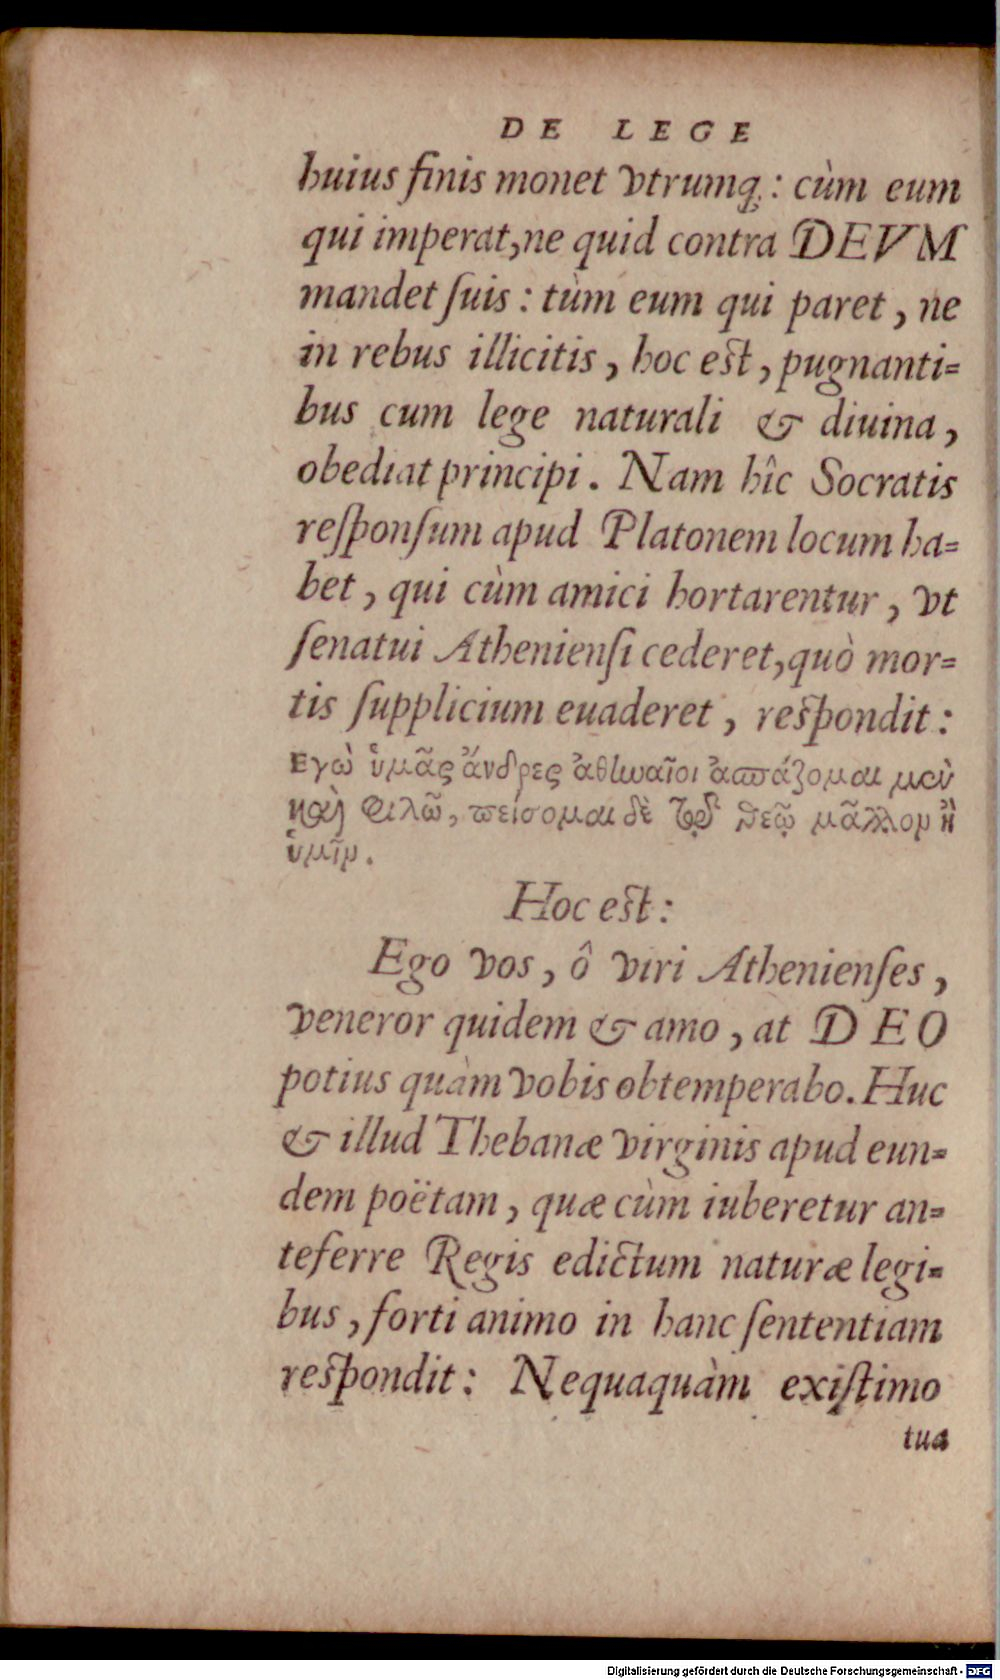 DE LEGE
huius finis monet vtrumq́;: cùm eum
qui imperat, ne quid contra DEVM
mandet ſuis: tùm eum qui paret, ne
in rebus illicitis, hoc eſt, pugnanti-
bus cum lege naturali & diuina,
obediat principi. Nam hîc Socratis
reſponſum apud Platonem locum ha-
bet, qui cùm amici hortarentur, vt
ſenatui Athenienſi cederet, quò mor-
tis ſupplicium euaderet, reſpondit:
Εγὼ ὑμᾶς ἄνδρες ἀθηναῖοι ἀσπάζομαι μὲν
καὶ φιλῶ, πείσομαι δὲ τῷ δὲ θεῷ μᾶλλον ἢ
ὑμῖν.
Hoc eſt:
Ego vos, ô viri Athenienſes,
veneror quidem & amo, at DEO
potius quàm vobis obtemperabo. Huc
& illud Thebanæ virginis apud eun-
dem poëtam, quæ cùm iuberetur an-
teferre Regis edictum naturæ legi-
bus, forti animo in hanc ſententiam
reſpondit: Nequaquàm exiſtimo
tua
Digitalisierung gefördert durch die Deutsche Forschungsgemeinschaft - DFG